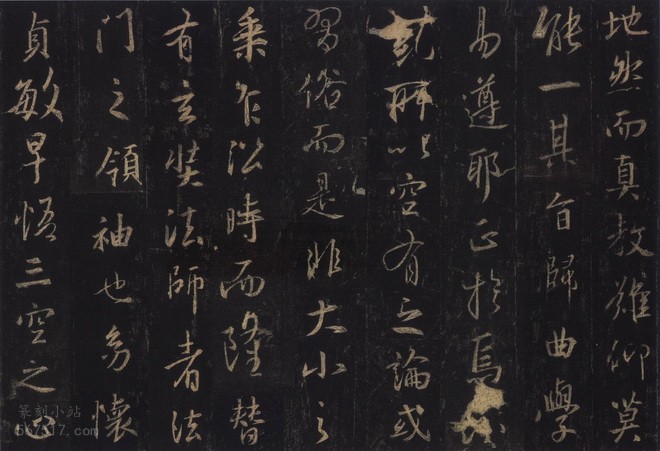 地然而真教難仰莫
能一其旨歸曲學
易遵耶正於焉紛
糺所以空有之論或
習俗而是非大小之
乘乍沿時而隆替
有玄奘法師者法
門之領袖也幼懷
貞敏早悟三空之心
篆刻小站